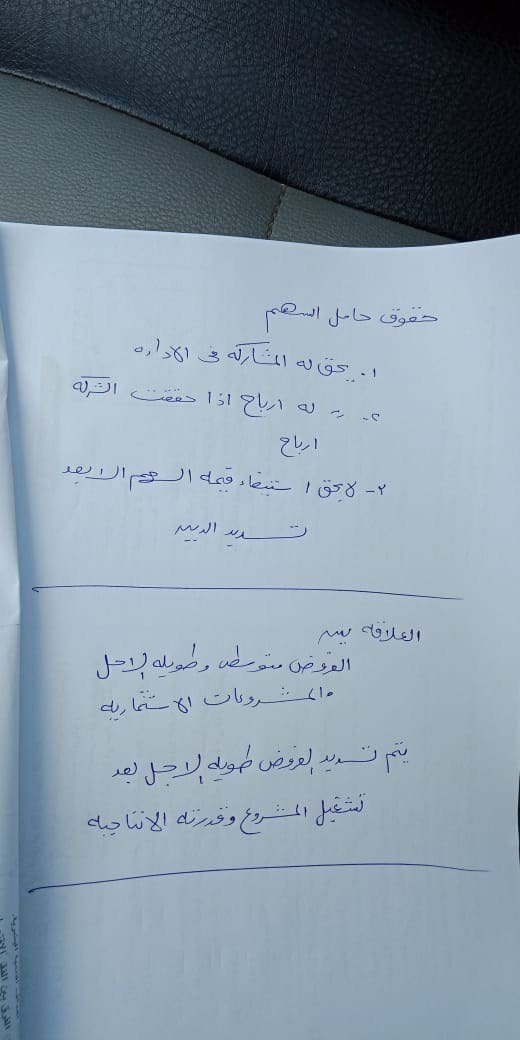 حقوق حامل السهم
١. يحق له المشاركه فى الاداره
٢. 〃 له ارباح اذا حققت الشركه
ارباح
٣- لا يحق استيفاء قيمه السهم الا بعد
تسديد الديون
العلاقه بين
القروض متوسطه وطويله الاجل
والمشروعات الاستثماريه
يتم تسديد القروض طويله الاجل بعد
تشغيل المشروع وقدرته الانتاجيه